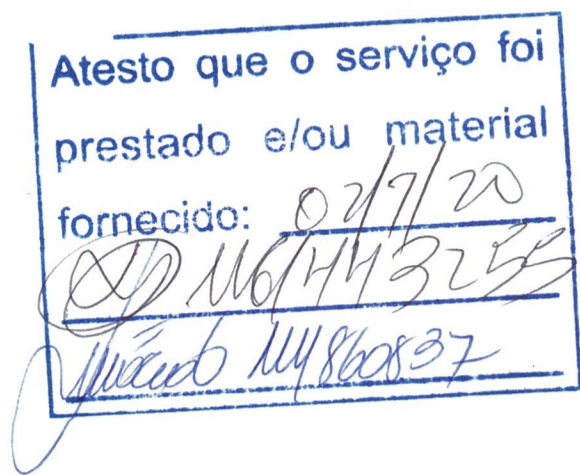 Atesto que o serviço foi
prestado e/ou material
fornecido: 02/7/20
116/443255
111/860837